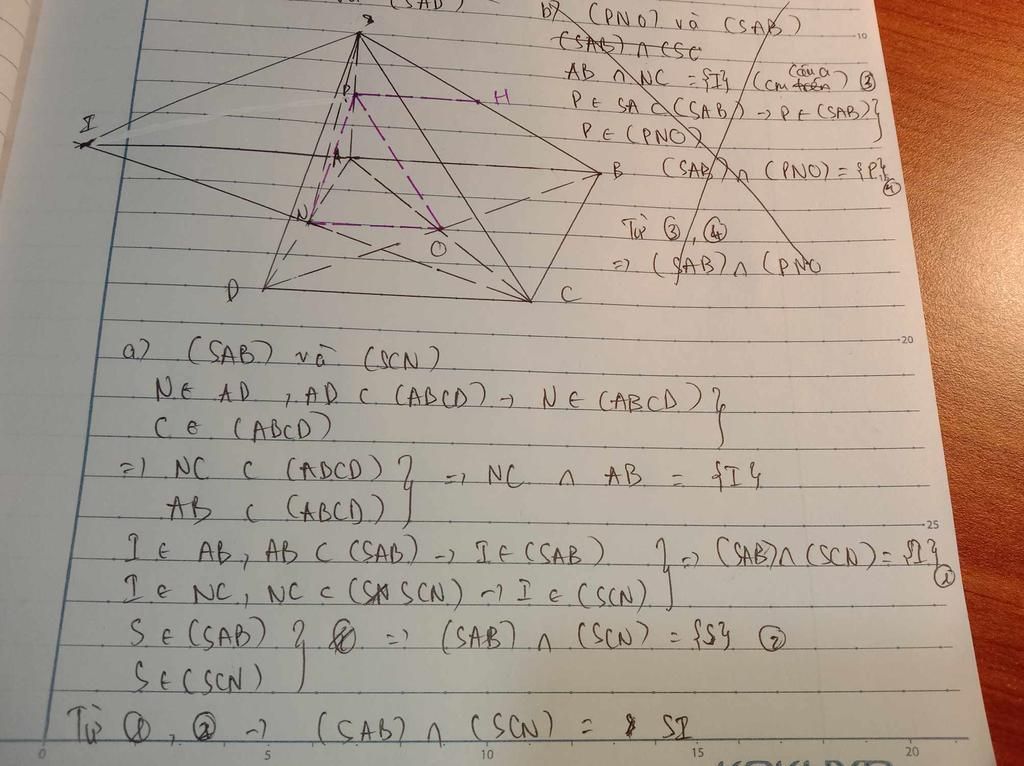 (SAD)
b) (PNO) và (SAB)
(SAB) ∩ (SC
AB ∩ NC = {I} (câu a cm trên) ③
P ∈ SA ⊂ (SAB) → P ∈ (SAB) }
P ∈ (PNO)
(SAB) ∩ (PNO) = {P} ④
Từ ③, ④
=> (SAB) ∩ (PNO
S
I
P
H
A
B
N
O
D
C
a) (SAB) và (SCN)
N ∈ AD, AD ⊂ (ABCD) → N ∈ (ABCD) }
C ∈ (ABCD)
=> NC ⊂ (ABCD) } => NC ∩ AB = {I}
AB ⊂ (ABCD)
I ∈ AB, AB ⊂ (SAB) → I ∈ (SAB) } => (SAB) ∩ (SCN) = {I} ①
I ∈ NC, NC ⊂ (SCN) → I ∈ (SCN)
S ∈ (SAB) } => (SAB) ∩ (SCN) = {S} ②
S ∈ (SCN)
Từ ①, ② → (SAB) ∩ (SCN) = SI
10
20
25
0 5 10 15 20